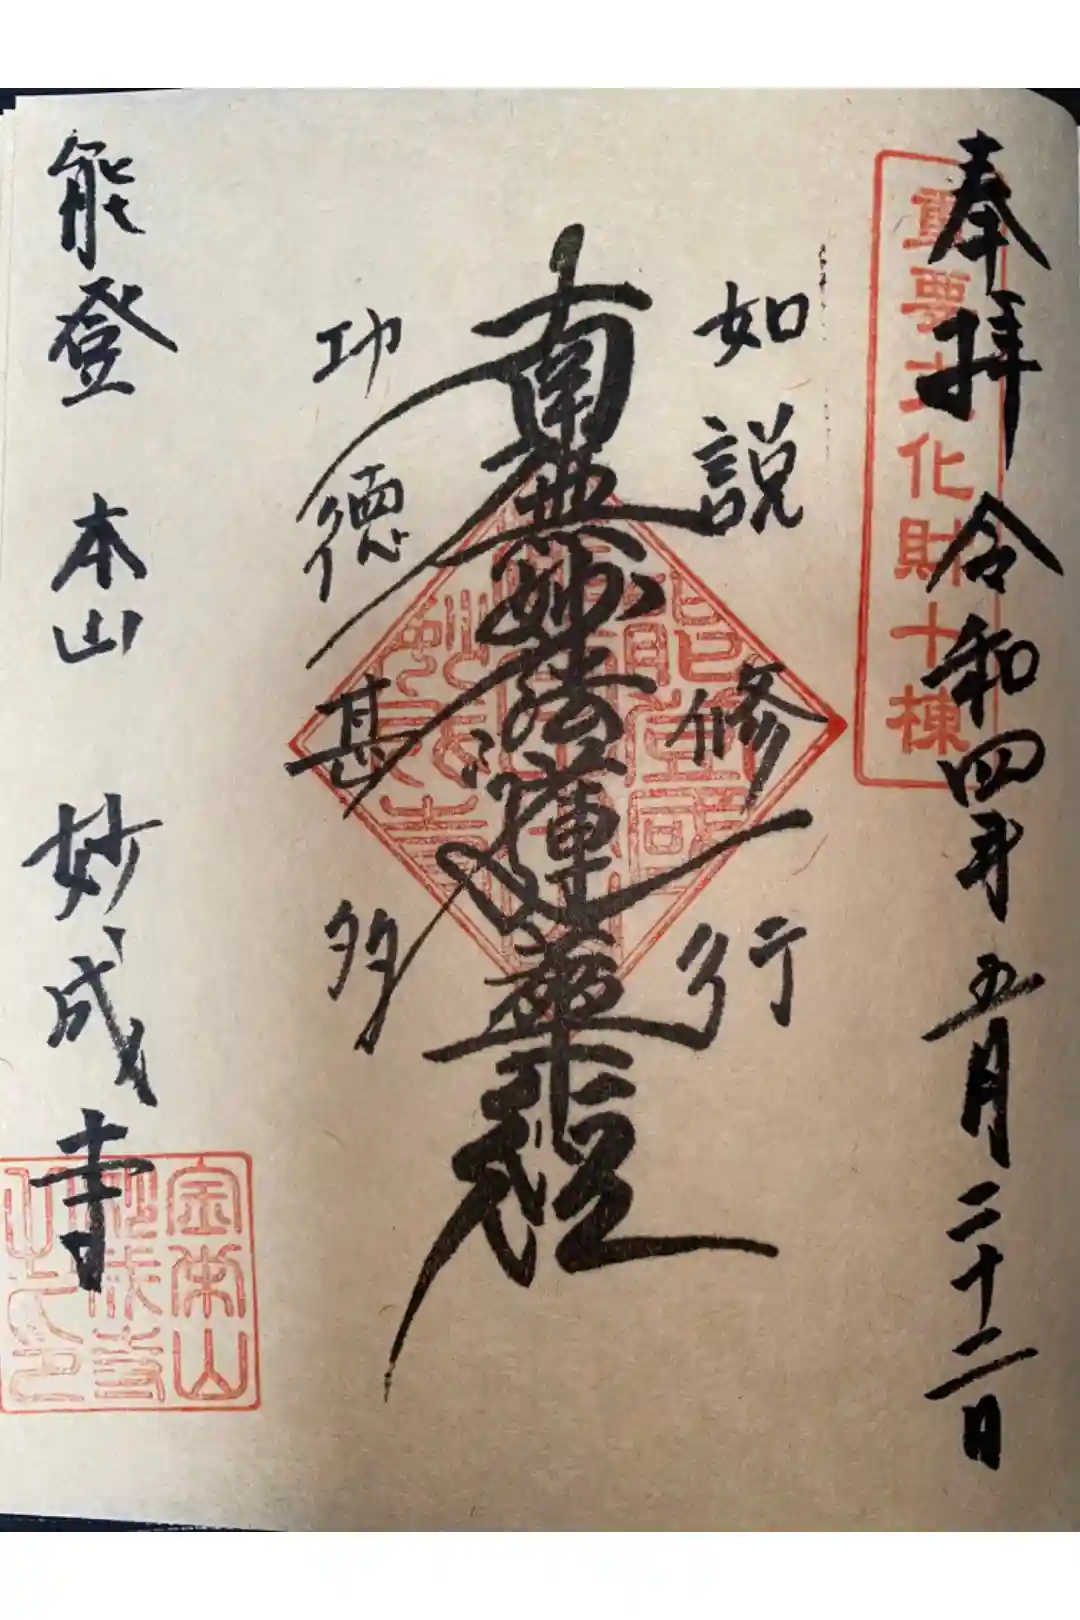 奉拝 令和四年五月二十二日
重要文化財十棟
如説修行
南無妙法蓮華経
功徳甚多
能登 本山 妙成寺
金栄山
妙成寺
之印